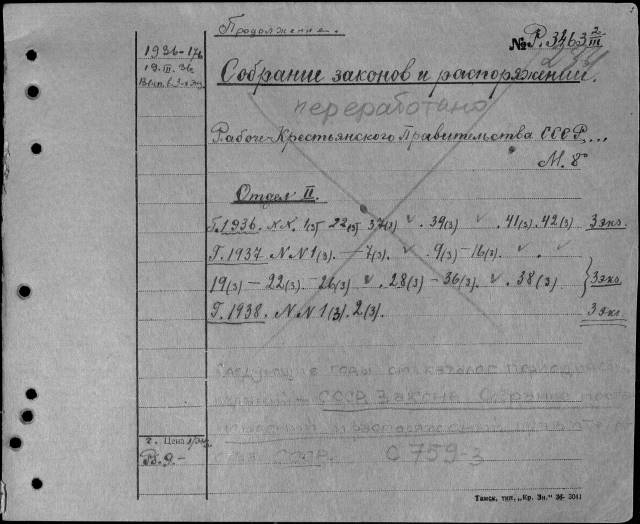 Продолжение.
№ Р.3463 2/III
1936-17б
19.III.36г
234
Собрание законов и распоряжений.
переработано
Рабоче-Крестьянского Правительства СССР...
М. 8°
Отдел II.
Г.1936. №№ 1(3)- 22(3) 37(3) ✓. 39(3) ✓. 41(3). 42(3) 3 экз.
Г.1937. №№ 1(3). - 7(3). ✓. 9(3)-16(3). ✓. ✓
19(3) - 22(3). -26(3) ✓. 28(3) - 36(3) ✓. 38(3) 3 экз
Г.1938. №№ 1(3). 2(3). 3 экз.
Следующие годы см. каталог
СССР Законы Собрание
и распоряжений
СССР. С 759-3
г. Цена
Томск, тип. „Кр. Зн." 36- 3041